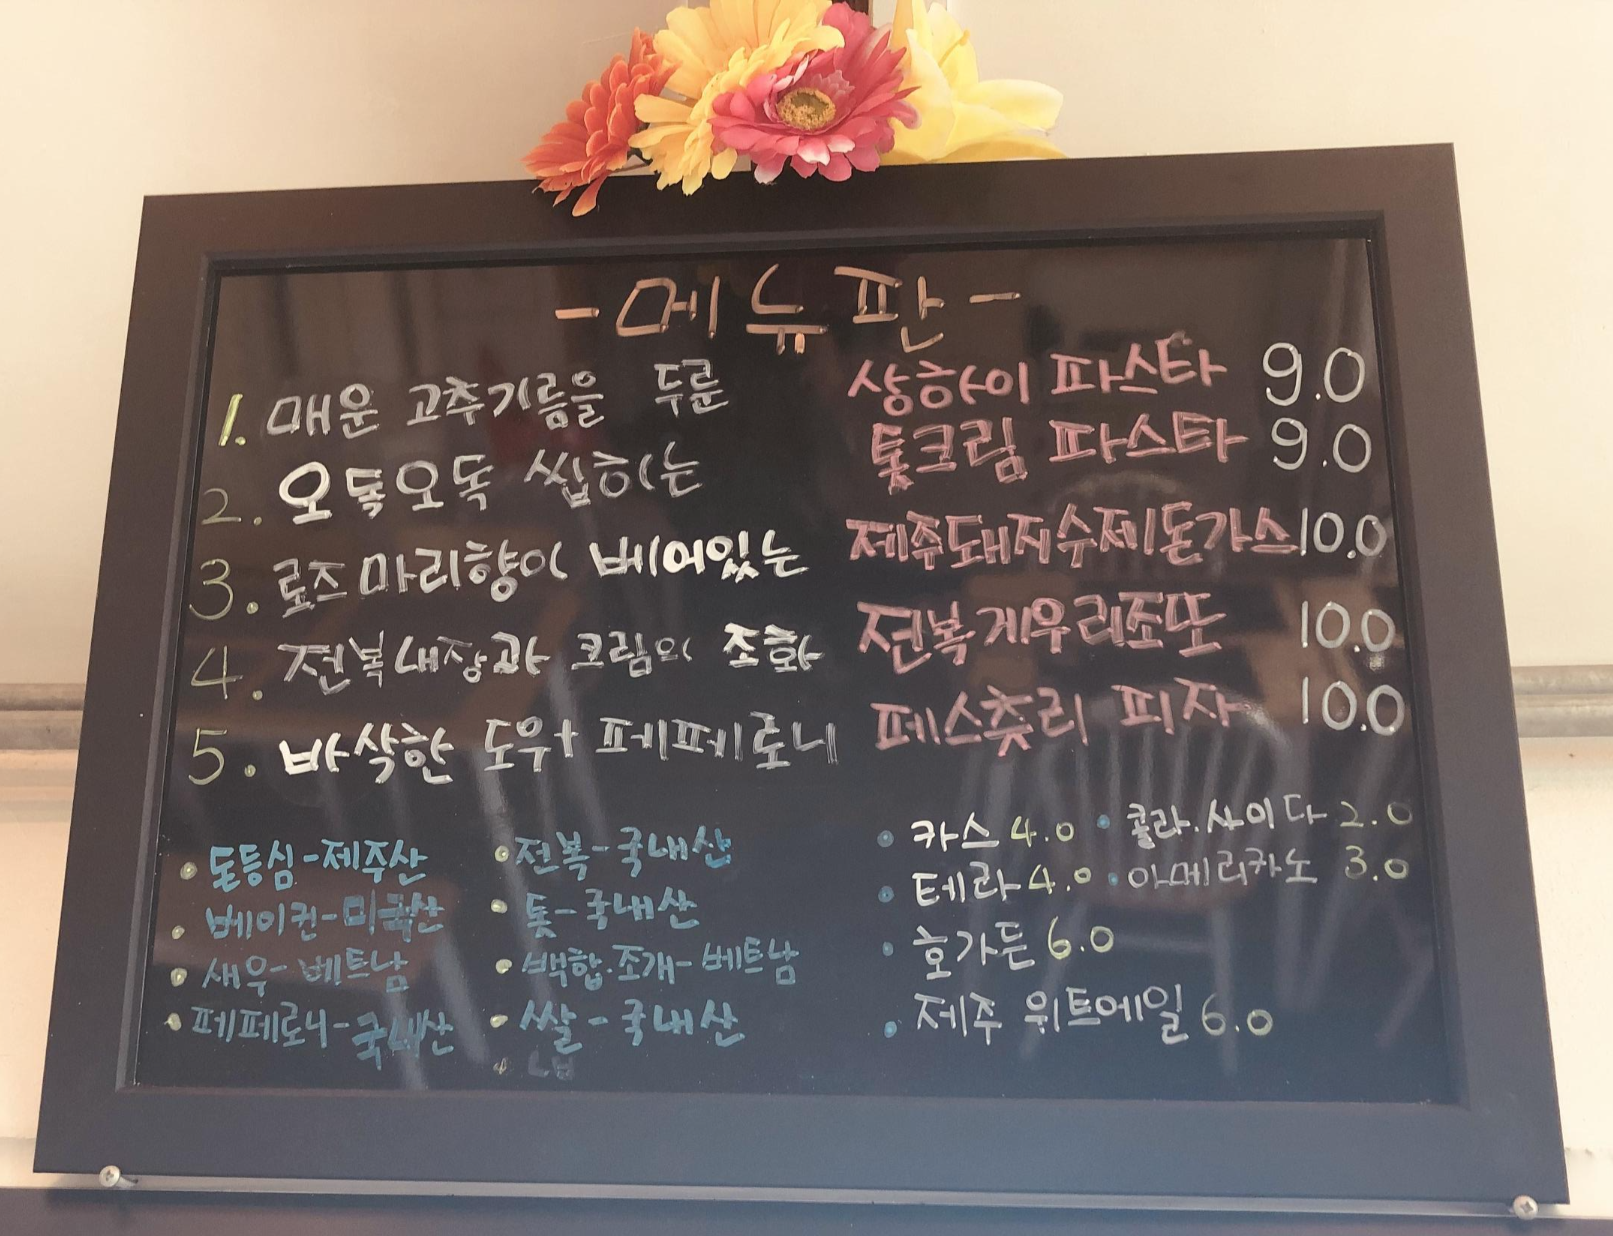 -메뉴판-
1. 매운 고추기름을 두룬 상하이 파스타 9.0
2. 오독오독 씹히는 톳크림 파스타 9.0
3. 로즈마리향이 베어있는 제주돼지수제돈가스 10.0
4. 전복내장과 크림의 조화 전복게우리조또 10.0
5. 바삭한 도우+페페로니 페스츄리 피자 10.0
• 돈등심-제주산 • 전복-국내산
• 베이컨-미국산 • 톳-국내산
• 새우-베트남 • 백합.조개-베트남
• 페페로니-국내산 • 쌀-국내산
• 카스 4.0 • 콜라.사이다 2.0
• 테라 4.0 • 아메리카노 3.0
• 호가든 6.0
• 제주 위트에일 6.0